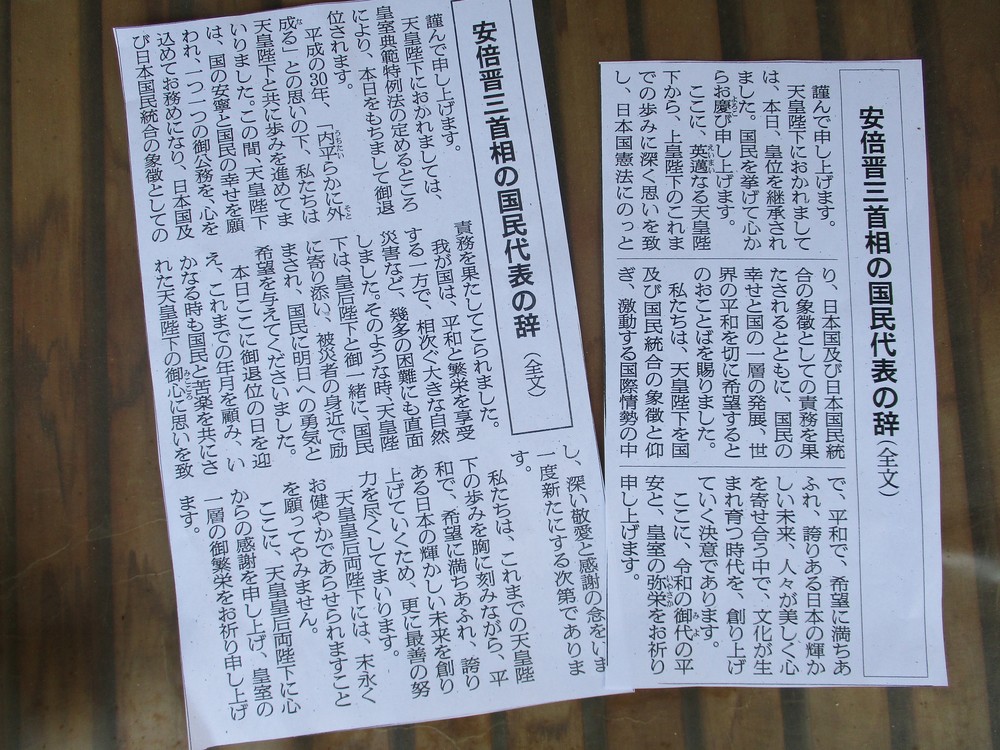 安倍晋三首相の国民代表の辞（全文）
謹んで申し上げます。
天皇陛下におかれまして
は、本日、皇位を継承され
ました。国民を挙げて心か
らお慶び申し上げます。
よろこ
ここに、英邁なる天皇陛
えいまい
下から、上皇陛下のこれま
での歩みに深く思いを致
し、日本国憲法にのっと
り、日本国及び日本国民統
合の象徴としての責務を果
たされるとともに、国民の
幸せと国の一層の発展、世
界の平和を切に希望すると
のおことばを賜りました。
私たちは、天皇陛下を国
及び国民統合の象徴と仰
ぎ、激動する国際情勢の中
で、平和で、希望に満ちあ
ふれ、誇りある日本の輝か
しい未来、人々が美しく心
を寄せ合う中で、文化が生
まれ育つ時代を、創り上げ
ていく決意であります。
ここに、令和の御代の平
みよ
安と、皇室の弥栄をお祈り
いやさか
申し上げます。
安倍晋三首相の国民代表の辞（全文）
謹んで申し上げます。
天皇陛下におかれましては、
皇室典範特例法の定めるところ
により、本日をもちまして御退
位されます。
平成の30年、「内平らかに外
うちたい
そと
成る」との思いの下、私たちは
な
天皇陛下と共に歩みを進めてま
いりました。この間、天皇陛下
は、国の安寧と国民の幸せを願
われ、一つ一つの御公務を、心を
込めてお務めになり、日本国及
び日本国民統合の象徴としての
責務を果たしてこられました。
我が国は、平和と繁栄を享受
する一方で、相次ぐ大きな自然
災害など、幾多の困難にも直面
しました。そのような時、天皇陛
下は、皇后陛下と御一緒に、国民
に寄り添い、被災者の身近で励
まされ、国民に明日への勇気と
希望を与えてくださいました。
本日ここに御退位の日を迎
え、これまでの年月を顧み、い
かなる時も国民と苦楽を共にさ
れた天皇陛下の御心に思いを致
みこころ
し、深い敬愛と感謝の念をいま
一度新たにする次第でありま
す。
私たちは、これまでの天皇陛
下の歩みを胸に刻みながら、平
和で、希望に満ちあふれ、誇り
ある日本の輝かしい未来を創り
上げていくため、更に最善の努
力を尽くしてまいります。
天皇皇后両陛下には、末永く
お健やかであらせられますこと
を願ってやみません。
ここに、天皇皇后両陛下に心
からの感謝を申し上げ、皇室の
一層の御繁栄をお祈り申し上げ
ます。